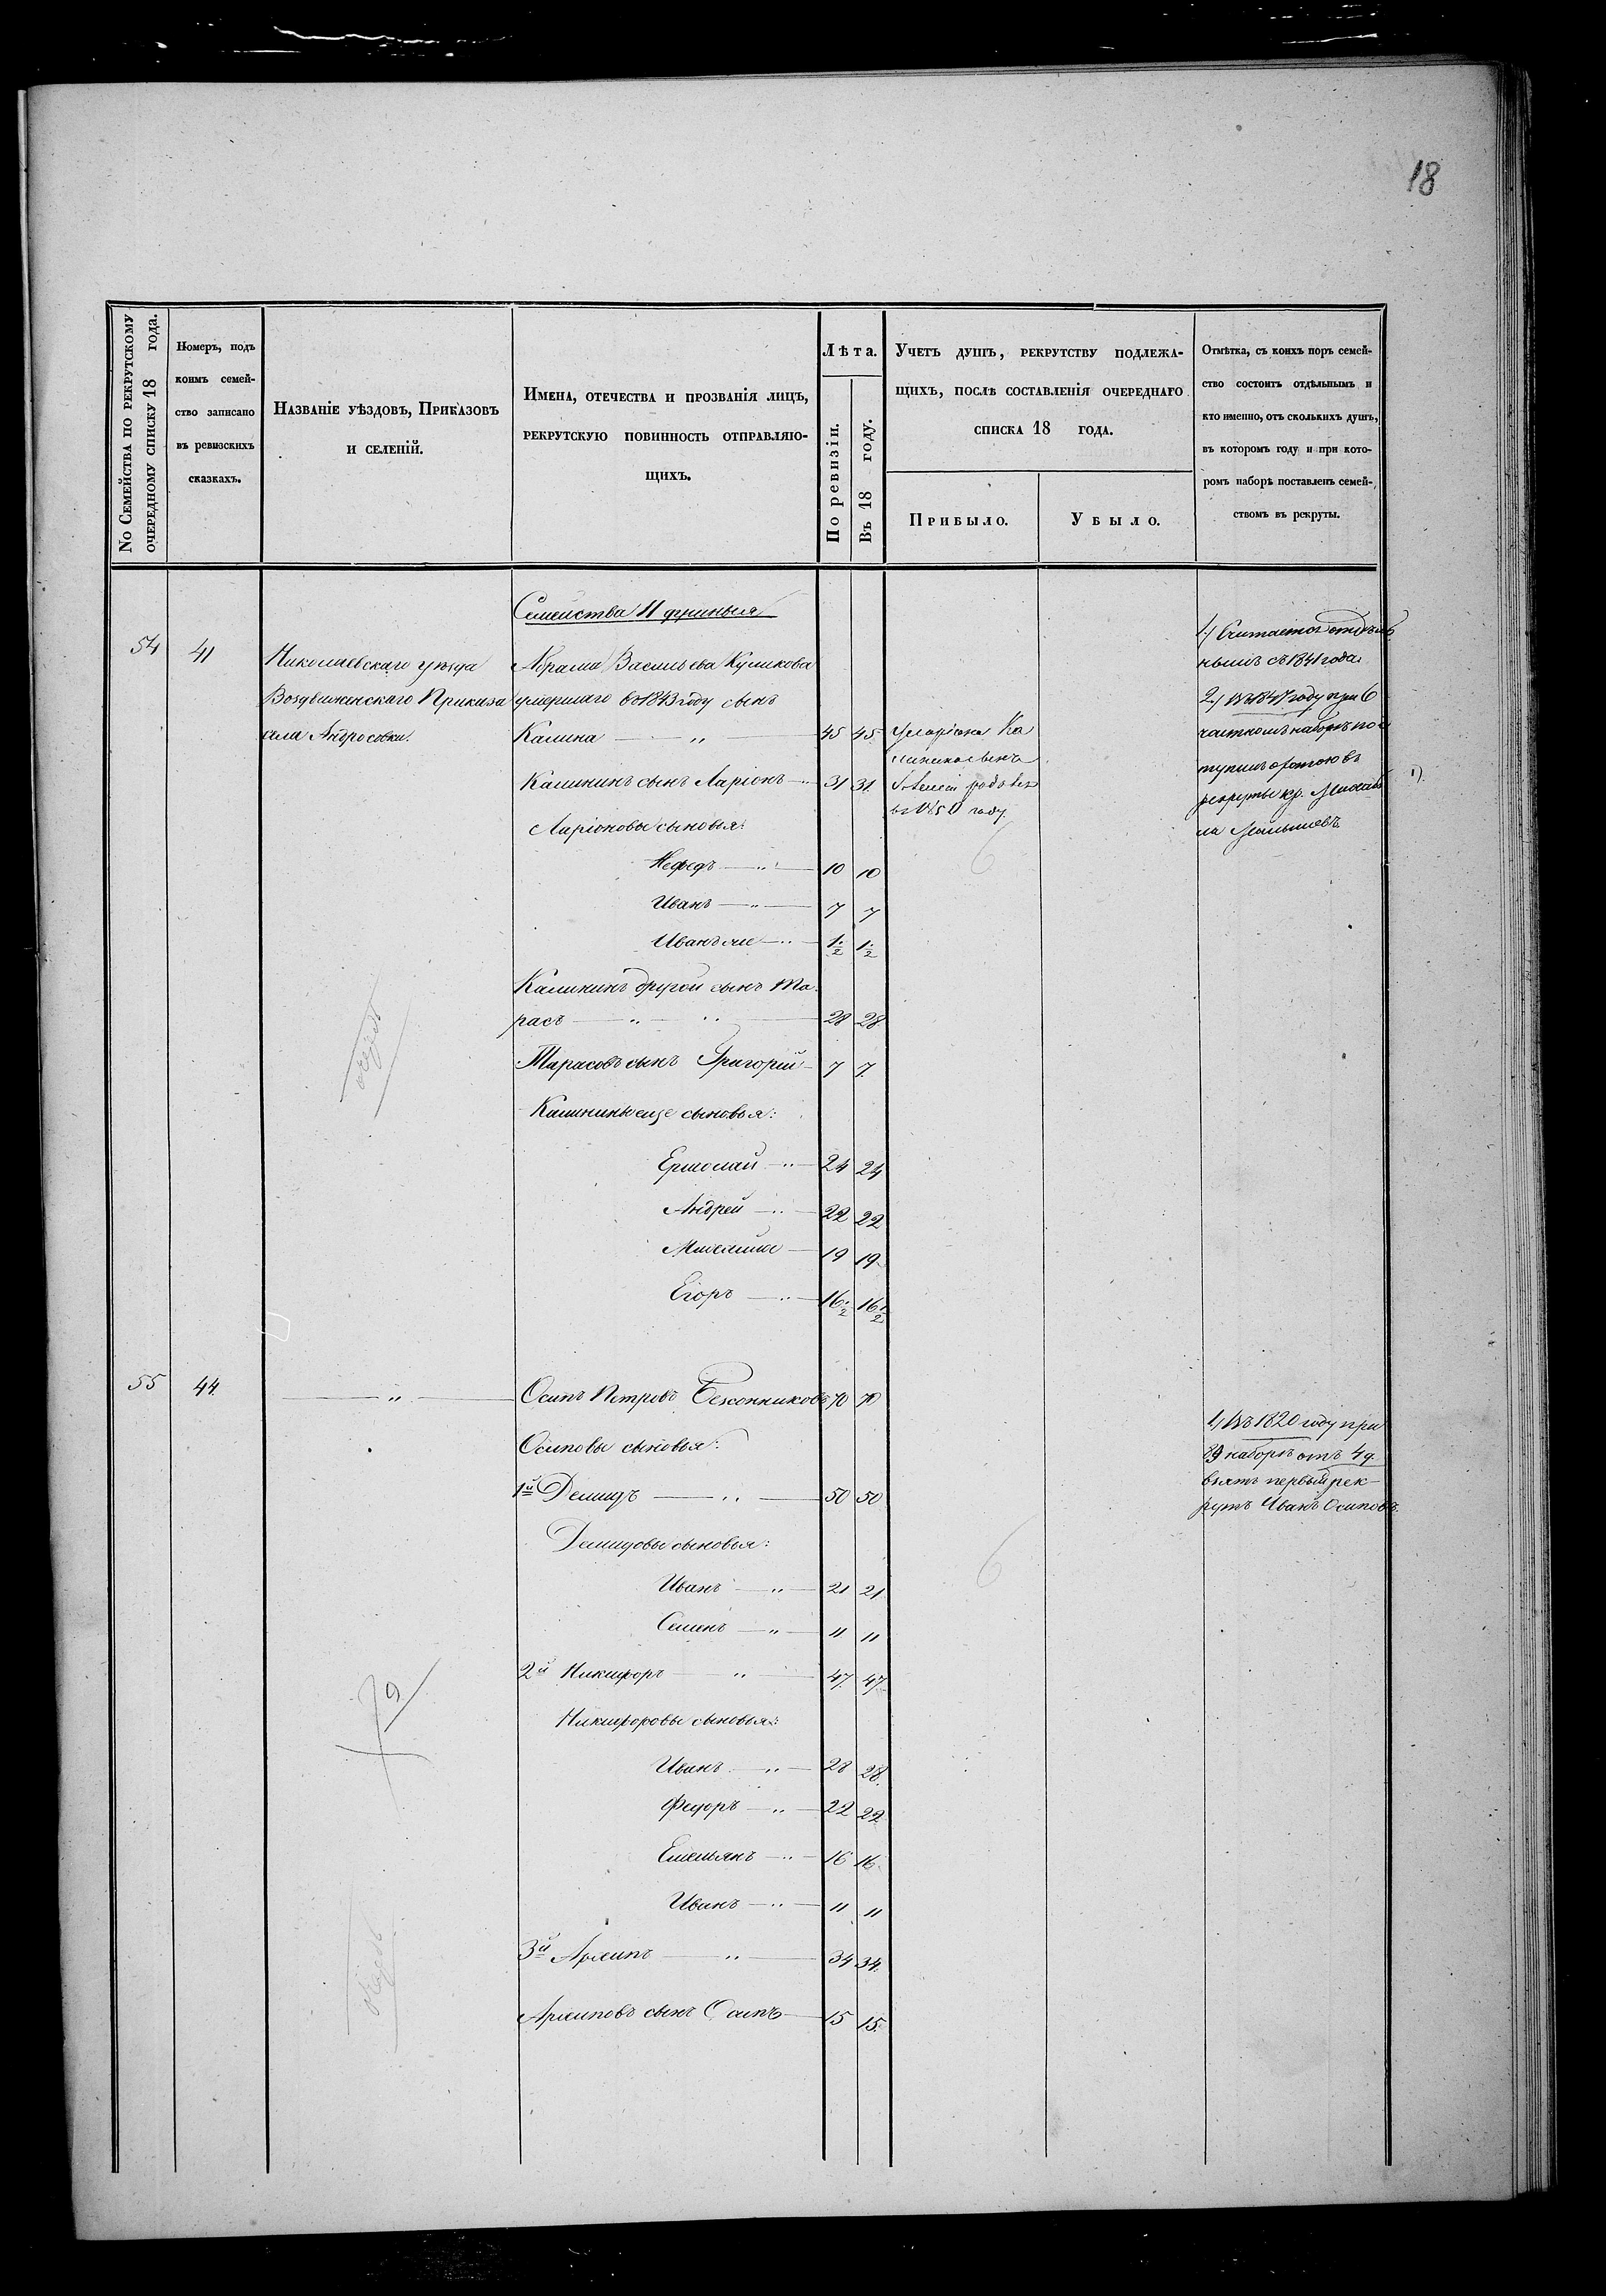 18
No Семейства по рекрутскому
очередному списку 18 года.
Номеръ, подъ
коимъ семей-
ство записано
въ ревизскихъ
сказкахъ.
Названіе уѣздовъ, Приказовъ
и селеній.
Имена, отечества и прозванія лицъ,
рекрутскую повинность отправляю-
щихъ.
Лѣта.
По ревизіи.
Въ 18 году.
Учетъ душъ, рекрутству подлежа-
щихъ, послѣ составленія очереднаго
списка 18 года.
Прибыло.
Убыло.
Отмѣтка, съ коихъ поръ семей-
ство состоитъ отдѣльнымъ и
кто именно, отъ сколькихъ душъ,
въ которомъ году и при кото-
ромъ наборѣ поставленъ семей-
ствомъ въ рекруты.
Семейства 11 душныя
54 41
Николаевскаго уѣзда
Воздвиженскаго Приказа
села Андросовки.
Абрама Васильева Куликова
умершаго въ 1843 году сынъ
Калина — " — 45 45
Калининъ сынъ Ларіонъ — 31 31
Ларіоновы сыновья:
Нефедъ — " — 10 10
Иванъ — " — 7 7
Иванъ же — " — 1/2 1/2
Калининъ другой сынъ Та-
расъ — " — 28 28
Тарасовъ сынъ Григорій — 7 7
Калинины еще сыновья:
Ермолай — " — 24 24
Андрей — " — 22 22
Михайла — 19 19
Егоръ — " — 16 1/2 16 1/2
У Ларіона Ка
линина сынъ
родився
въ 1850 году.
6
1) Считается отдѣль
нымъ съ 1841 года.
2) Въ 1847 году при 6
частномъ наборѣ по
ступилъ охотою въ
рекруты кр. Михай
ла Малышевъ.
1).
55 44
— " —
Осипъ Петровъ Безсонниковъ 70 70
Осиповы сыновья:
1й Демидъ — " — 50 50
Демидовы сыновья:
Иванъ — " — 21 21
Семенъ — " — 11 11
2й Никифоръ — " — 47 47
Никифоровы сыновья:
Иванъ — " — 28 28
Федоръ — " — 22 22
Емельянъ — " — 16 16
Иванъ — " — 11 11
3й Архипъ — " — 34 34
Архиповъ сынъ Осипъ — 15 15
6
1) Въ 1820 году при
89 наборѣ отъ 4 д.
взятъ первый рек-
рутъ Иванъ Осиповъ.